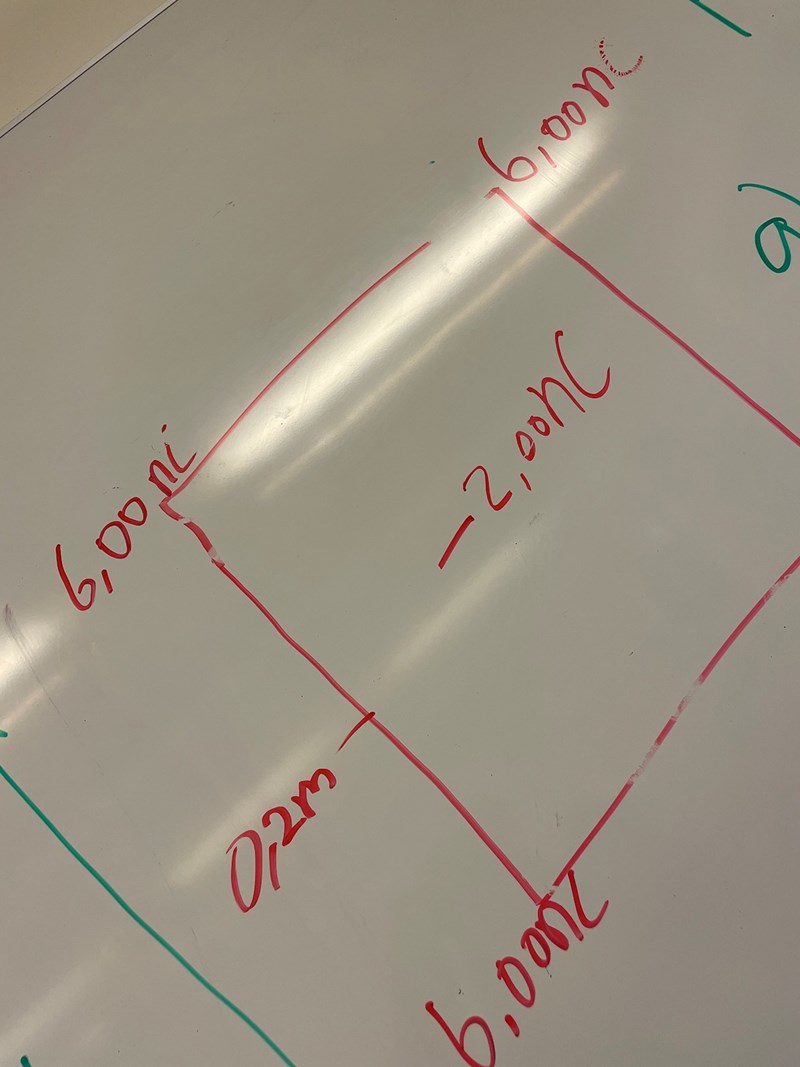 6,00 nC
6,00 nC
-2,00 nC
0,2m
6,00 nC
a)